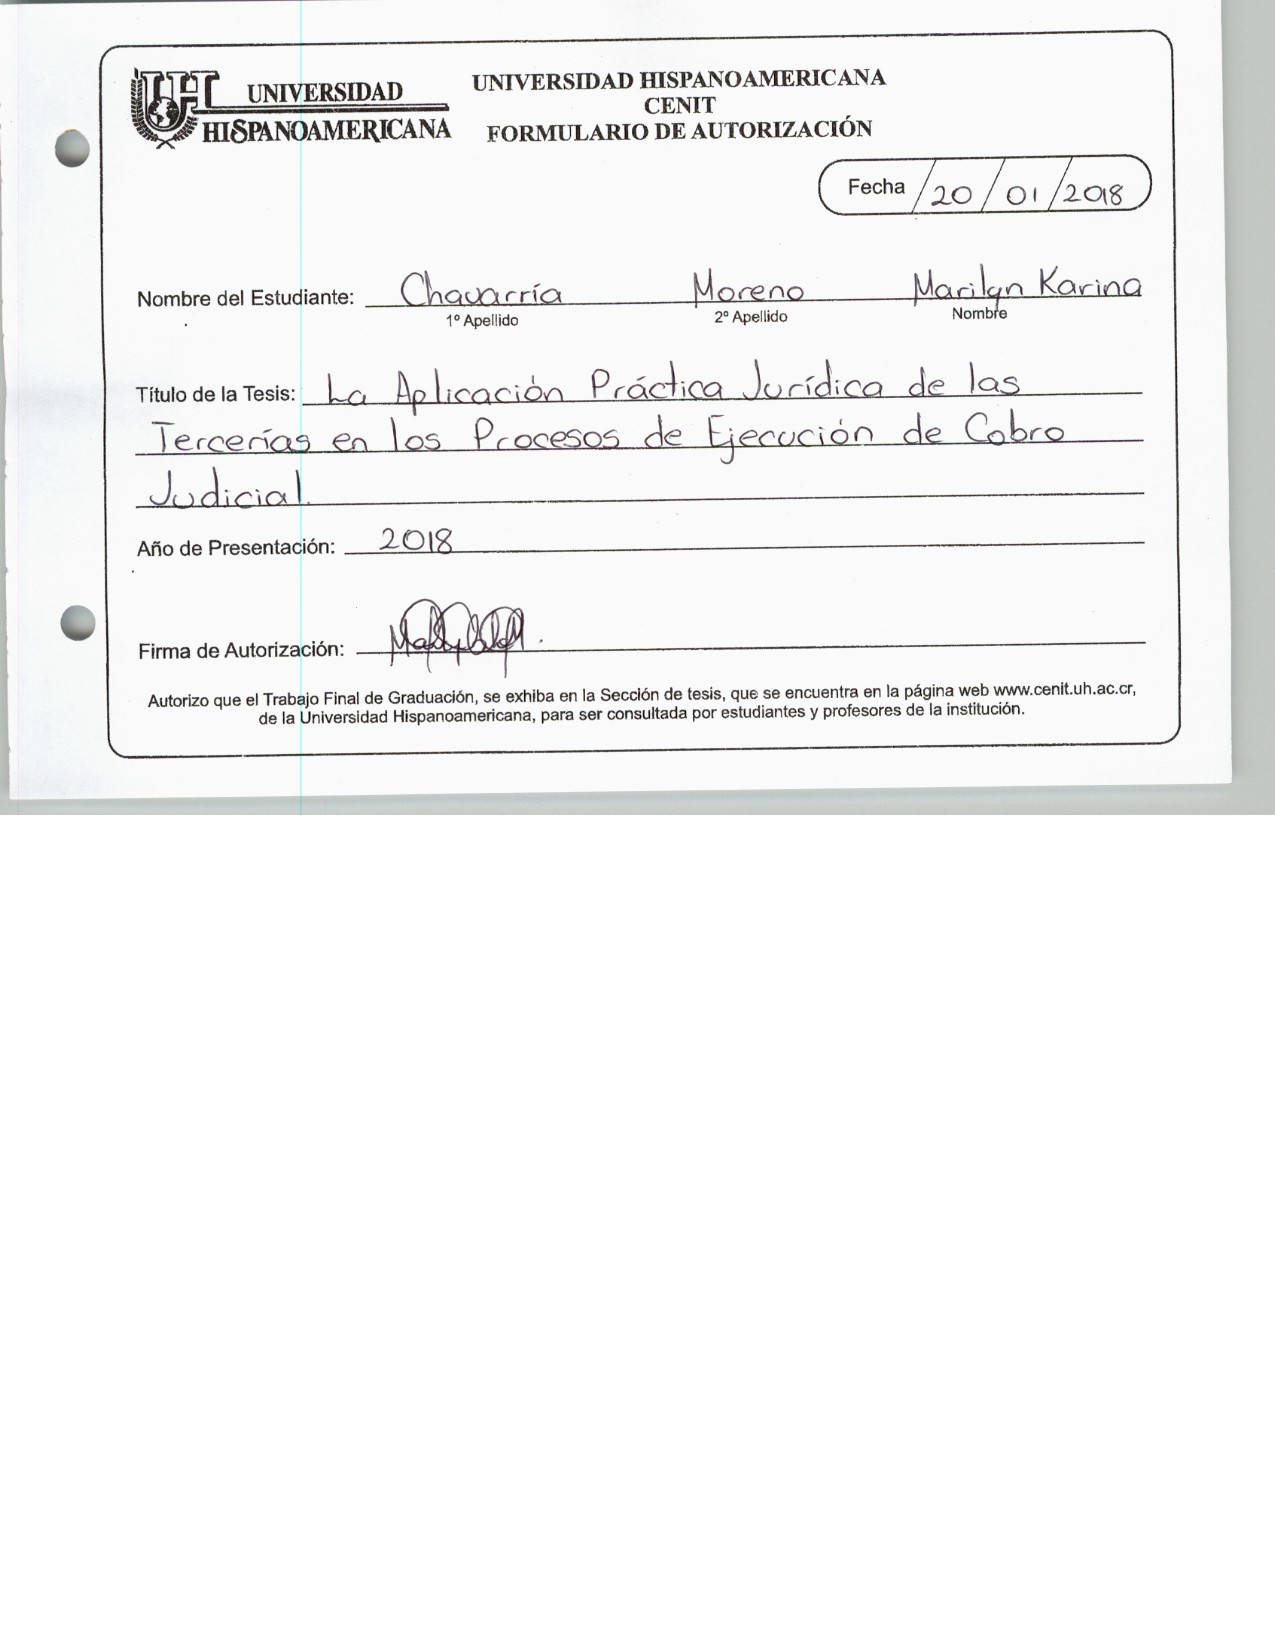 UNIVERSIDAD
HISPANOAMERICANA
UNIVERSIDAD HISPANOAMERICANA
CENIT
FORMULARIO DE AUTORIZACIÓN
Fecha / 20 / 01 / 2018
Nombre del Estudiante: Chavarría Moreno Marilyn Karina
1º Apellido 2º Apellido Nombre
Título de la Tesis: La Aplicación Práctica Jurídica de las
Tercerías en los Procesos de Ejecución de Cobro
Judicial.
Año de Presentación: 2018
Firma de Autorización:
Autorizo que el Trabajo Final de Graduación, se exhiba en la Sección de tesis, que se encuentra en la página web www.cenit.uh.ac.cr,
de la Universidad Hispanoamericana, para ser consultada por estudiantes y profesores de la institución.